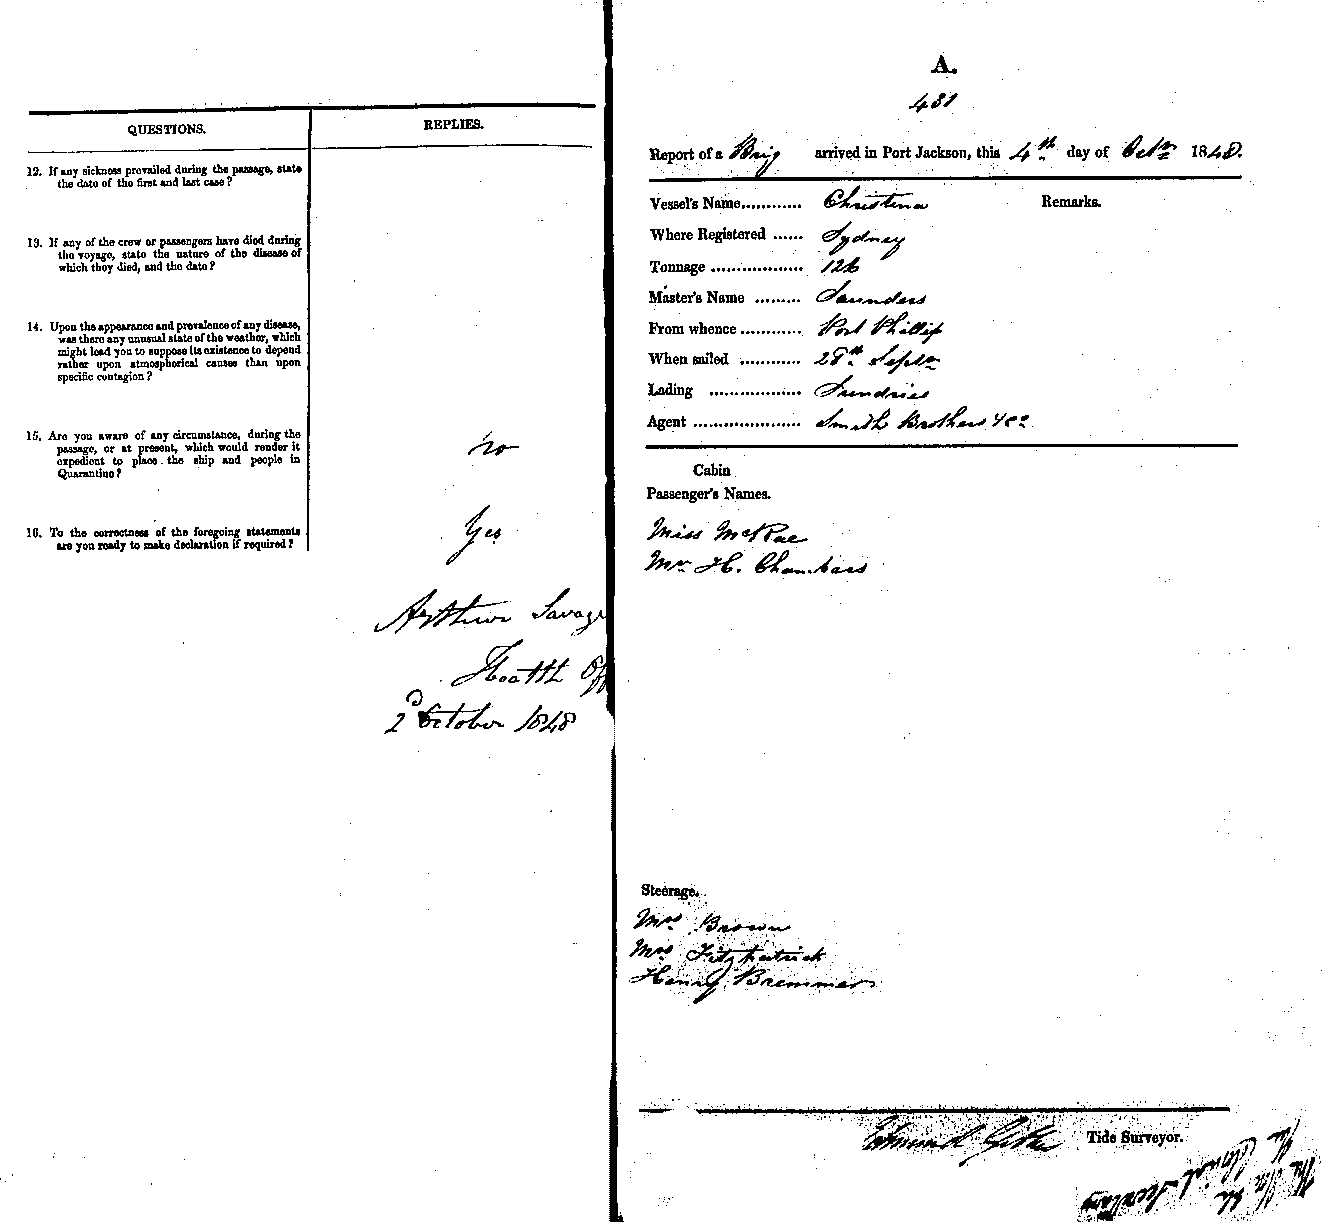 QUESTIONS.
REPLIES.
12. If any sickness prevailed during the passage, state
the date of the first and last case?
13. If any of the crew or passengers have died during
the voyage, state the nature of the disease of
which they died, and the date?
14. Upon the appearance and prevalence of any disease,
was there any unusual state of the weather, which
might lead you to suppose its existence to depend
rather upon atmospherical causes than upon
specific contagion?
15. Are you aware of any circumstance, during the
passage, or at present, which would render it
expedient to place the ship and people in
Quarantine?
no
16. To the correctness of the foregoing statements
are you ready to make declaration if required?
Yes
Arthur Savage
Health Off
2d October 1848
A.
431
Report of a Brig arrived in Port Jackson, this 4th day of Octr 1848.
Vessel's Name............ Christina
Remarks.
Where Registered ...... Sydney
Tonnage .................. 126
Master's Name ......... Saunders
From whence ............ Port Phillip
When sailed ............ 28th Septr
Lading .................. Sundries
Agent ..................... Smith Brothers & Co
Cabin
Passenger's Names.
Miss McRae
Mr H. Chambers
Steerage.
Mrs Brown
Mrs Fitzpatrick
Henry Bremmer
Edmund Tide Surveyor.
The Hon. the
Colonial Secretary